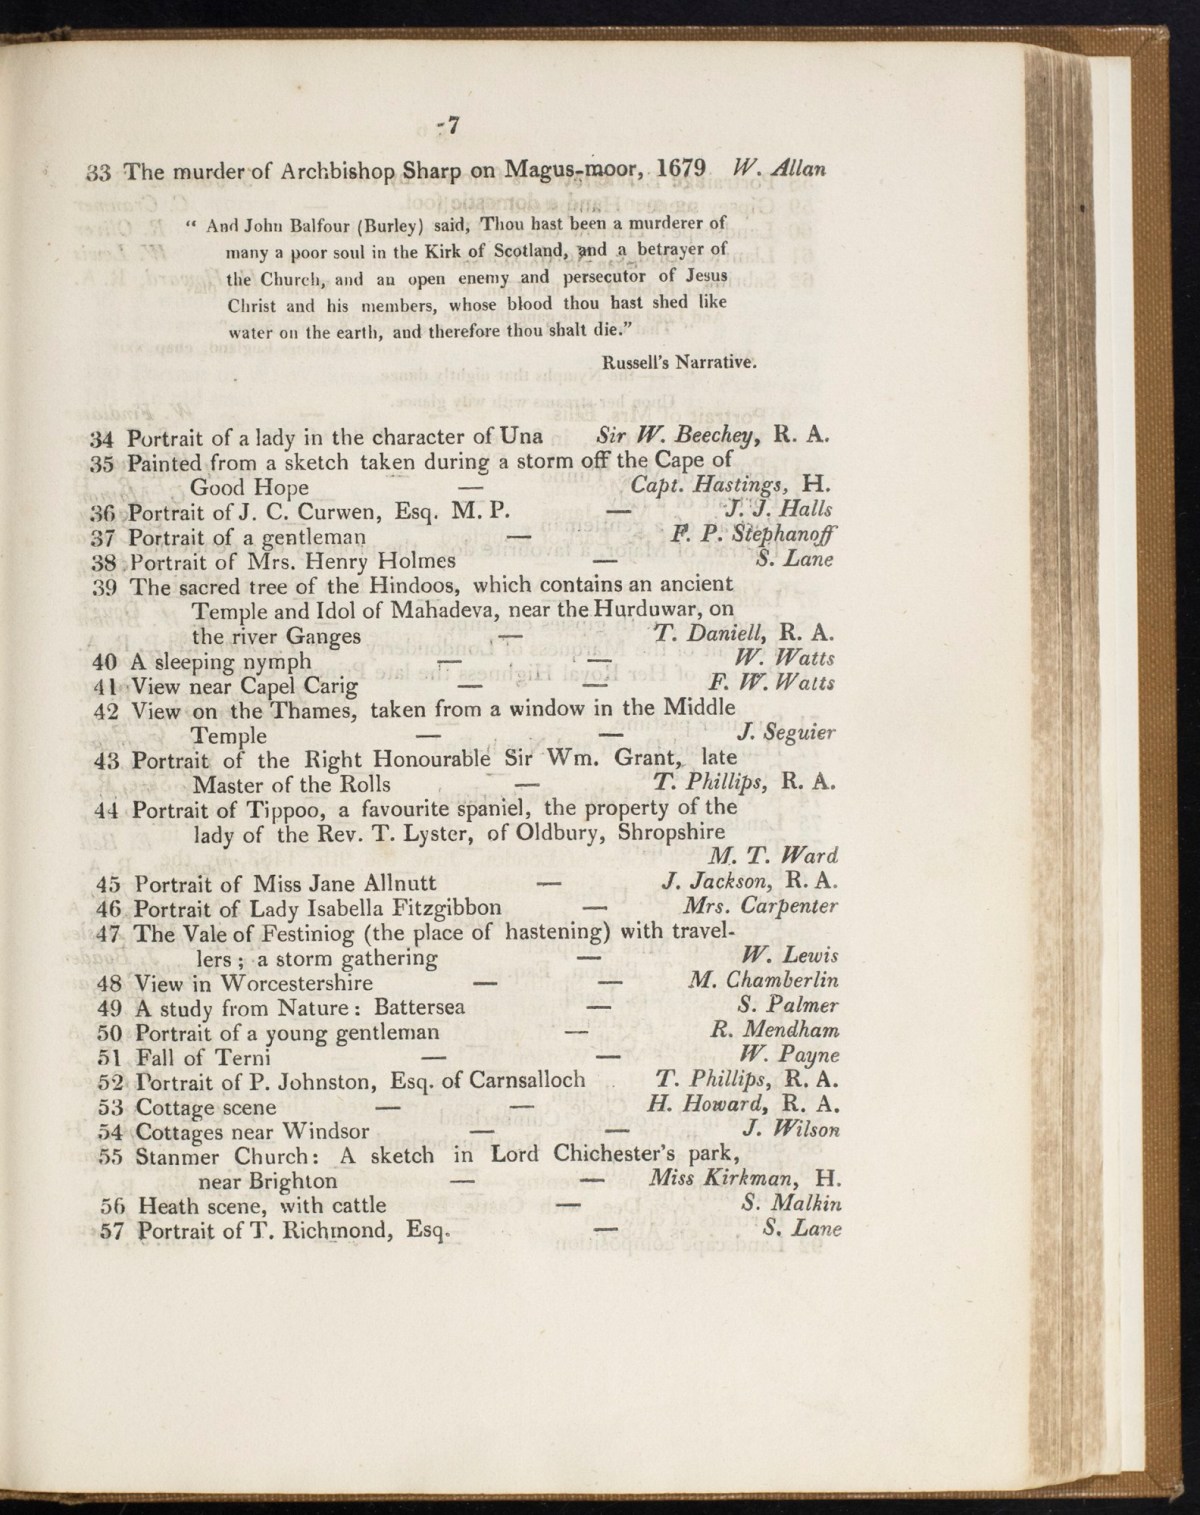 -7
33 The murder of Archbishop Sharp on Magus-moor, 1679 W. Allan
“ And John Balfour (Burley) said, Thou hast been a murderer of
many a poor soul in the Kirk of Scotland, and a betrayer of
the Church, and an open enemy and persecutor of Jesus
Christ and his members, whose blood thou hast shed like
water on the earth, and therefore thou shalt die.”
Russell's Narrative.
34 Portrait of a lady in the character of Una Sir W. Beechey, R. A.
35 Painted from a sketch taken during a storm off the Cape of
Good Hope — Capt. Hastings, H.
36 Portrait of J. C. Curwen, Esq. M. P. — J. J. Halls
37 Portrait of a gentleman — F. P. Stephanoff
38 Portrait of Mrs. Henry Holmes — S. Lane
39 The sacred tree of the Hindoos, which contains an ancient
Temple and Idol of Mahadeva, near the Hurduwar, on
the river Ganges — T. Daniell, R. A.
40 A sleeping nymph — — W. Watts
41 View near Capel Carig — — F. W. Watts
42 View on the Thames, taken from a window in the Middle
Temple — — J. Seguier
43 Portrait of the Right Honourable Sir Wm. Grant, late
Master of the Rolls — T. Phillips, R. A.
44 Portrait of Tippoo, a favourite spaniel, the property of the
lady of the Rev. T. Lyster, of Oldbury, Shropshire
M. T. Ward
45 Portrait of Miss Jane Allnutt — J. Jackson, R. A.
46 Portrait of Lady Isabella Fitzgibbon — Mrs. Carpenter
47 The Vale of Festiniog (the place of hastening) with travel-
lers ; a storm gathering — W. Lewis
48 View in Worcestershire — — M. Chamberlin
49 A study from Nature : Battersea — S. Palmer
50 Portrait of a young gentleman — R. Mendham
51 Fall of Terni — — W. Payne
52 Portrait of P. Johnston, Esq. of Carnsalloch T. Phillips, R. A.
53 Cottage scene — — H. Howard, R. A.
54 Cottages near Windsor — — J. Wilson
55 Stanmer Church : A sketch in Lord Chichester's park,
near Brighton — — Miss Kirkman, H.
56 Heath scene, with cattle — S. Malkin
57 Portrait of T. Richmond, Esq. — S. Lane